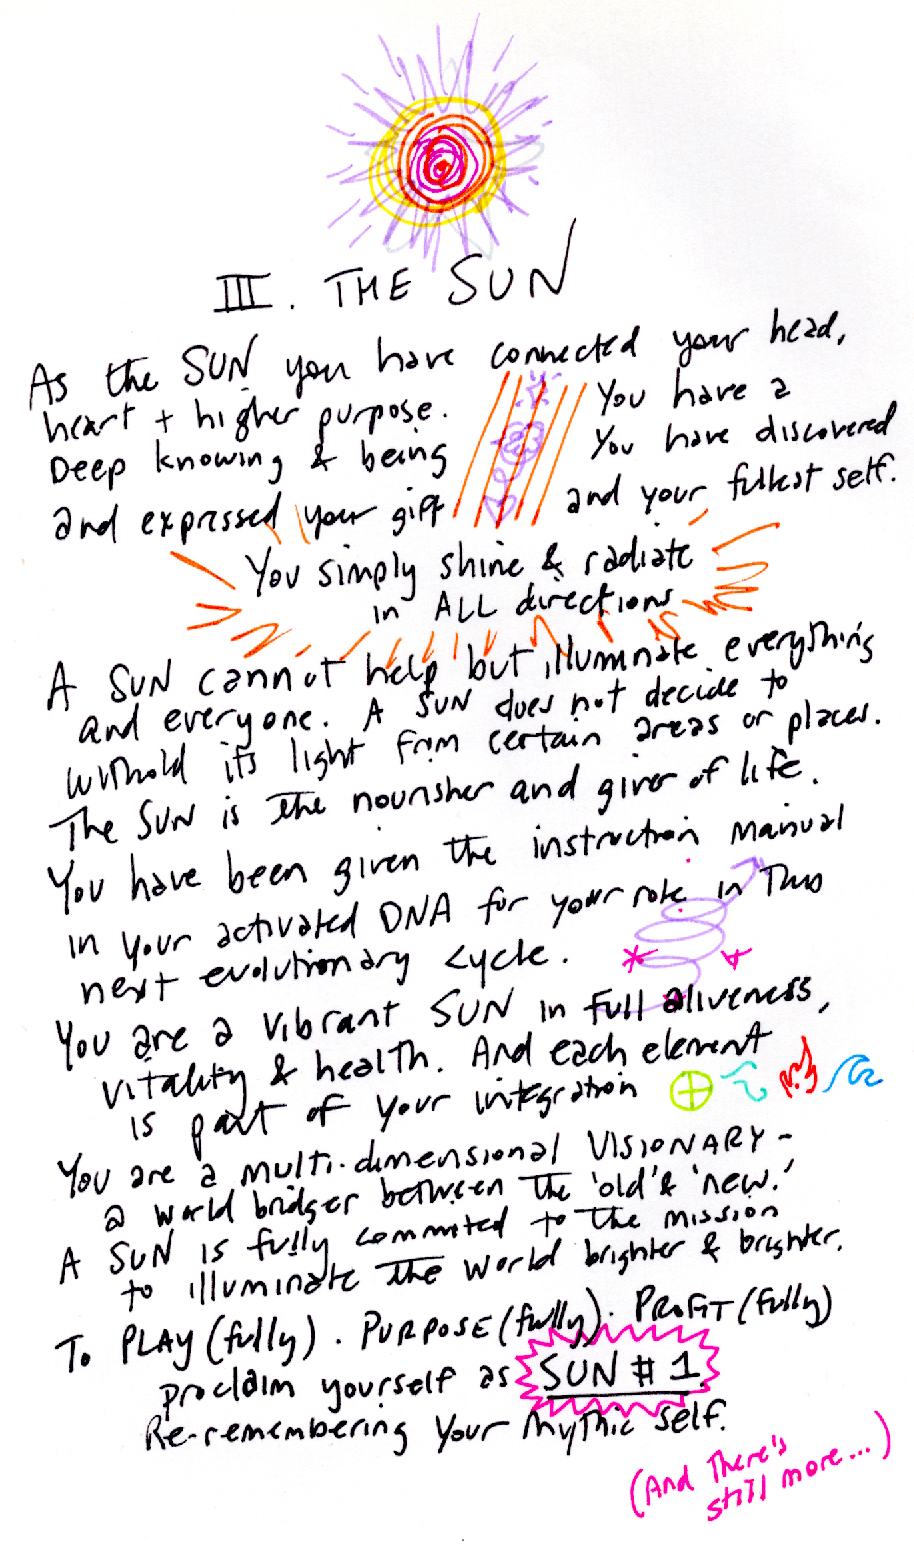 III. THE SUN
As the SUN you have connected your head,
heart + higher purpose. You have a
Deep knowing & being You have discovered
and expressed your gift and your fullest self.
You simply shine & radiate
in ALL directions
A SUN cannot help but illuminate everything
and everyone. A SUN does not decide to
withold its light from certain areas or places.
The SUN is the nourisher and giver of life.
You have been given the instruction manual
in your activated DNA for your role in This
next evolutionary cycle.
You are a vibrant SUN in full aliveness,
vitality & health. And each element
is part of your integration
You are a multi-dimensional VISIONARY -
a world bridger between the 'old' & 'new.'
A SUN is fully commited to the mission
to illuminate the world brighter & brighter.
To PLAY (fully). PURPOSE (fully). PROFIT (fully)
proclaim yourself as SUN #1.
Re-remembering your mythic self.
(And There's
still more...)